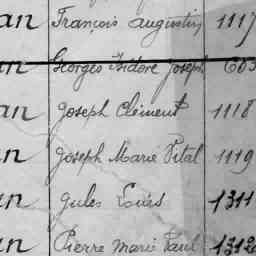 an François Augustin 1117
an Georges Isidore Joseph 683
an Joseph Clément 1118
an Joseph Marie Vital 1119
an Jules Louis 1311
an Pierre Marie Paul 1312